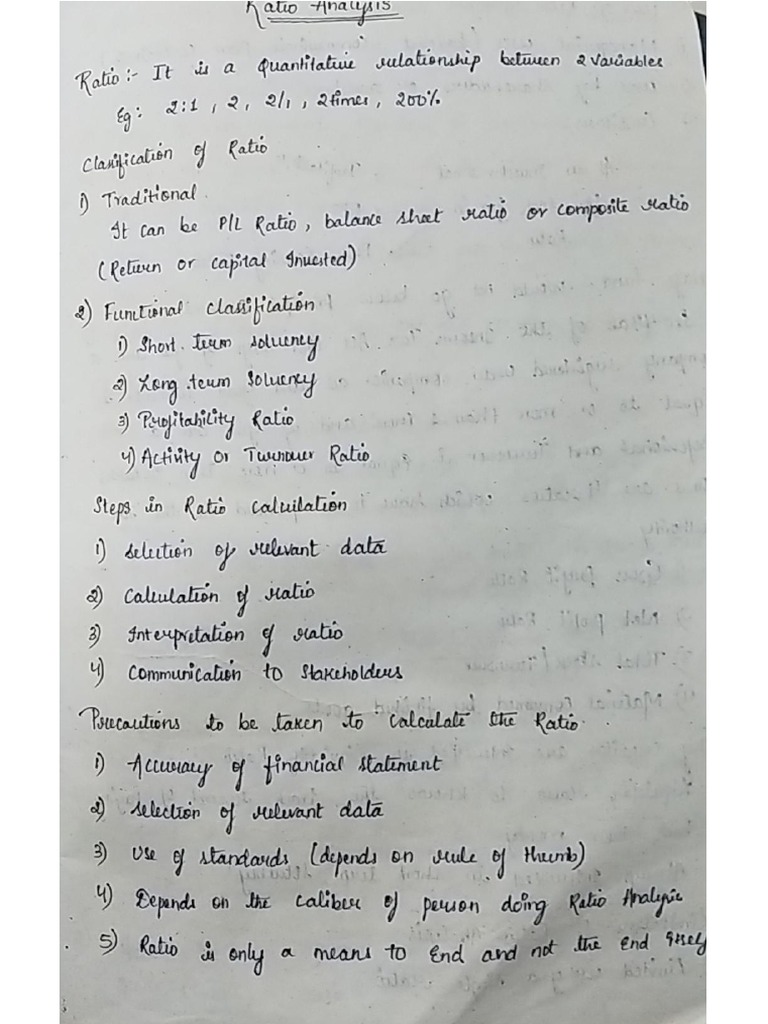 Ratio Analysis
Ratio :- It is a Quantitative relationship between 2 variables
Eg : 2:1 , 2, 2/1 , 2 times , 200%
Classification of Ratio
1) Traditional
It can be P/L Ratio, balance sheet ratio or composite ratio
(Return or capital Invested)
2) Functional classification
1) Short term solvency
2) Long term Solvency
3) Profitability Ratio
4) Activity or Turnover Ratio
Steps in Ratio calculation
1) Selection of relevant data
2) Calculation of ratio
3) Interpretation of ratio
4) Communication to Stakeholders
Precautions to be taken to calculate the Ratio.
1) Accuracy of financial statement
2) Selection of relevant data
3) Use of standards (depends on rule of thumb)
4) Depends on the caliber of person doing Ratio Analysis
5) Ratio is only a means to End and not the End itself